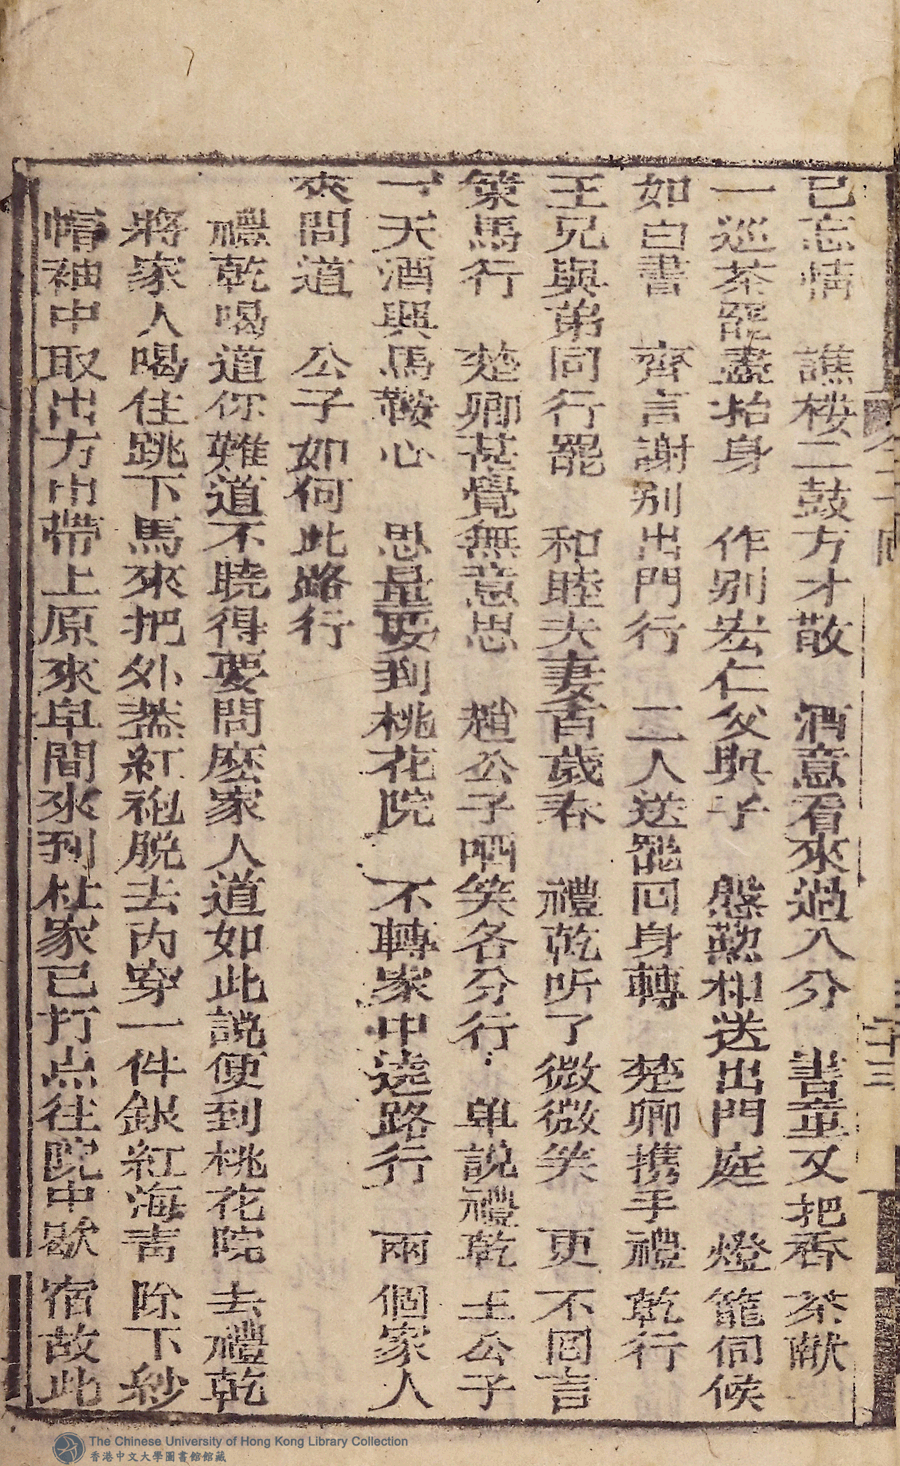 已忘情　譙楼二鼓方才散　酒意看來過八分　書童又把香茶献
一巡茶罷盡抬身　作别宏仁父與子　慇懃相送出門庭　燈籠伺候
如白晝　齊言謝别出門行　二人送罷回身轉　楚卿携手禮乾行
王兄與弟同行罷　和睦夫妻百歲春　禮乾听了微微笑　更不回言
策馬行　楚卿甚覺無意思　趙公子哂笑各分行　单説禮乾王公子
一天酒興馬鞍心　思量要到桃花院　不轉家中遶路行　兩個家人
來問道　公子如何此路行
禮乾喝道你難道不曉得要問麽家人道如此説便到桃花院去禮乾
將家人喝住跳下馬來把外盖紅袍脱去內穿一件銀紅海青除下紗
帽袖中取出方巾帶上原來早間來到杜家已打点往院中歇宿故此
二十三
The Chinese University of Hong Kong Library Collection
香港中文大學圖書館館藏